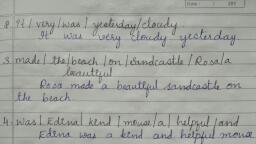 2. It / very / was / yesterday / cloudy
It was very cloudy yesterday.
3. made / the / beach / on / Sandcastle / Rosa / a
beautiful
Rosa made a beautiful sandcastle on
the beach.
4. Was / Edina / kind / mouse / a / helpful / and
Edina was a kind and helpful mouse